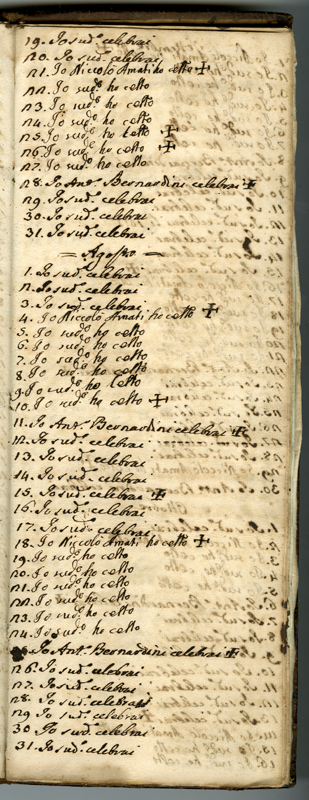 19. Io sud.º celebrai
20. Io sud.º celebrai
21. Io Niccolò Amati ho celto ✝
22. Io sud.º ho celto
23. Io sud.º ho celto
24. Io sud.º ho celto
25. Io sud.º ho celto ✝
26. Io sud.º ho celto ✝
27. Io sud.º ho celto
28. Io Ant.º Bernardini celebrai ✝
29. Io sud.º celebrai
30. Io sud.º celebrai
31. Io sud.º celebrai
= Agosto =
1. Io sud.º celebrai
2. Io sud.º celebrai
3. Io sud.º celebrai
4. Io Niccolò Amati ho celto ✝
5. Io sud.º ho celto
6. Io sud.º ho celto
7. Io sud.º ho celto
8. Io sud.º ho celto
9. Io sud.º ho celto
10. Io sud.º ho celto ✝
11. Io Ant.º Bernardini celebrai ✝
12. Io sud.º celebrai
13. Io sud.º celebrai
14. Io sud.º celebrai
15. Io sud.º celebrai ✝
16. Io sud.º celebrai
17. Io sud.º celebrai
18. Io Niccolò Amati ho celto ✝
19. Io sud.º ho celto
20. Io sud.º ho celto
21. Io sud.º ho celto
22. Io sud.º ho celto
23. Io sud.º ho celto
24. Io sud.º ho celto
Io Ant.º Bernardini celebrai ✝
26. Io sud.º celebrai
27. Io sud.º celebrai
28. Io sud.º celebrai
29. Io sud.º celebrai
30. Io sud.º celebrai
31. Io sud.º celebrai